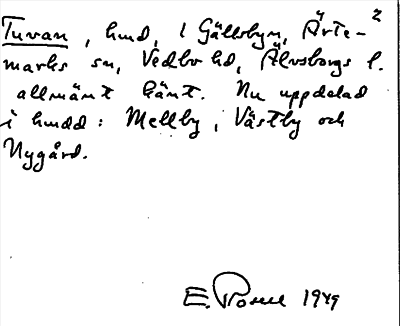 Tuvan, hmd, i Gällsbyn, Ärte- 2
marks sn, Vedbo hd, Älvsborgs l.
allmänt känt. Nu uppdelad
i hmdd: Mellby, Västby och
Nygård.
E. 1949